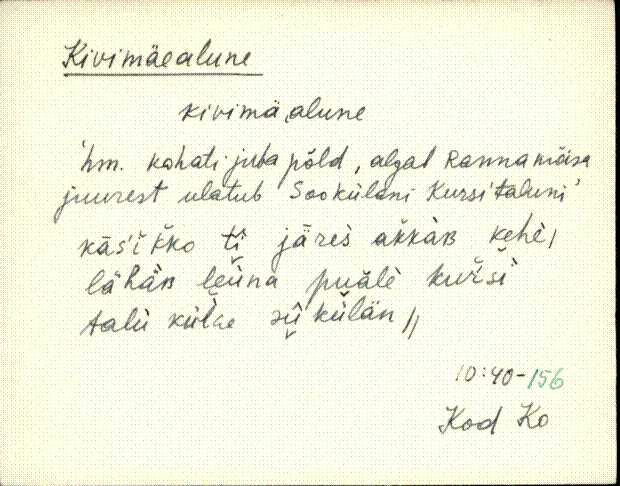 Kivimäealune
kivimä͕alune
hm. kohati juba põld, algab Rannamõisa
juurest ulatub Sooküläni Kursi taluni
kās'ikko tī järes akkàʙ kehè,
lähäʙ leüna puàlè kuřsi
talù külge sū külän //
10:40-156
Kod Ko